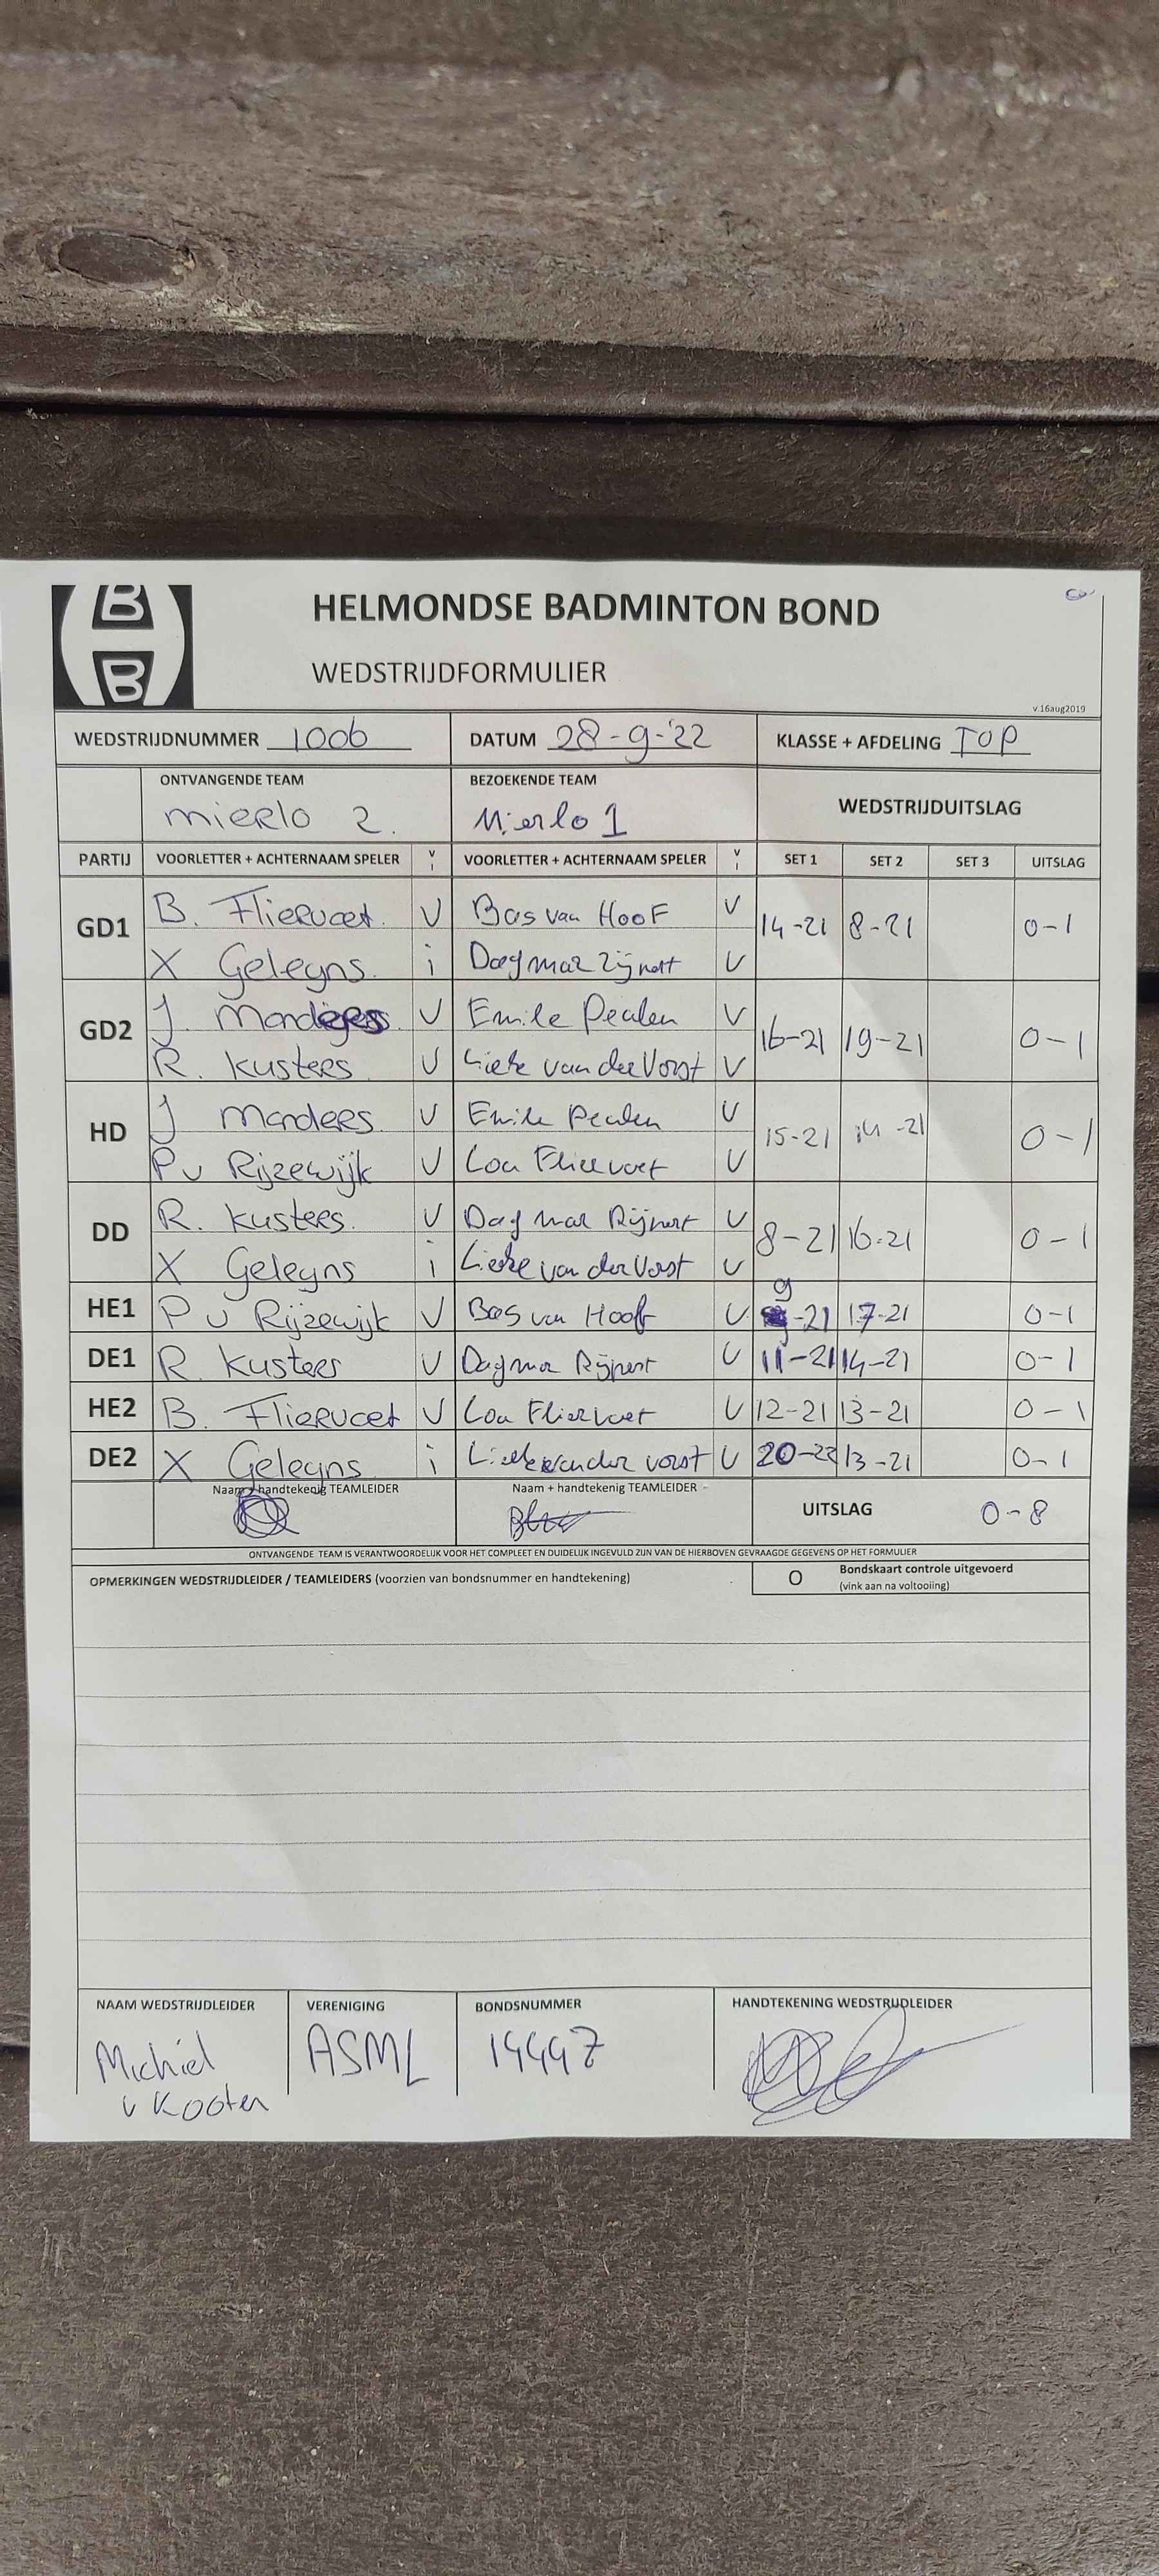 B
B
HELMONDSE BADMINTON BOND
WEDSTRIJDFORMULIER
v.16aug2019
WEDSTRIJDNUMMER 1006 DATUM 28-9-'22 KLASSE + AFDELING TOP
ONTVANGENDE TEAM BEZOEKENDE TEAM WEDSTRIJDUITSLAG
Mierlo 2. Mierlo 1
PARTIJ VOORLETTER + ACHTERNAAM SPELER V I VOORLETTER + ACHTERNAAM SPELER V I SET 1 SET 2 SET 3 UITSLAG
GD1 B. Fliervoet. V Bas van Hoof V 14-21 8-21 0-1
X Geleyns. i Dagmar Rijnert V
GD2 J. Manders. V Emile Peulen V 16-21 19-21 0-1
R. Kusters V Lieke van der Vorst V
HD J Manders. V Emile Peulen V 15-21 14-21 0-1
P v Rijzewijk V Lou Fliervoet V
DD R. Kusters. V Dagmar Rijnert V 8-21 16-21 0-1
X Geleyns i Lieke van der Vorst V
HE1 P v Rijzewijk V Bas van Hoof V 9-21 17-21 0-1
DE1 R Kusters V Dagmar Rijnert V 11-21 14-21 0-1
HE2 B. Fliervoet V Lou Fliervoet V 12-21 13-21 0-1
DE2 X Geleyns i Lieke van der Vorst V 20-22 13-21 0-1
Naam + handtekenig TEAMLEIDER Naam + handtekenig TEAMLEIDER UITSLAG 0-8
ONTVANGENDE TEAM IS VERANTWOORDELIJK VOOR HET COMPLEET EN DUIDELIJK INGEVULD ZIJN VAN DE HIERBOVEN GEVRAAGDE GEGEVENS OP HET FORMULIER
OPMERKINGEN WEDSTRIJDLEIDER / TEAMLEIDERS (voorzien van bondsnummer en handtekening) O Bondskaart controle uitgevoerd
(vink aan na voltooiing)
NAAM WEDSTRIJDLEIDER VERENIGING BONDSNUMMER HANDTEKENING WEDSTRIJDLEIDER
Michiel ASML 14447
v Kooten